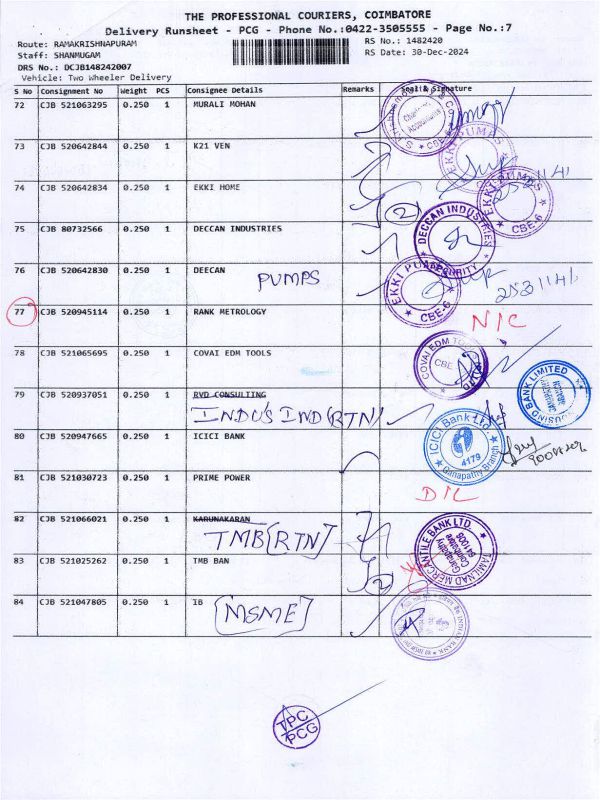 THE PROFESSIONAL COURIERS, COIMBATORE
Delivery Runsheet - PCG - Phone No.:0422-3505555 - Page No.:7
Route: RAMAKRISHNAPURAM
RS No.: 1482420
Staff: SHANMUGAM
RS Date: 30-Dec-2024
DRS No.: DCJB148242007
Vehicle: Two Wheeler Delivery
S No Consignment No Weight PCS Consignee Details Remarks Seal & Signature
72 CJB 521063295 0.250 1 MURALI MOHAN
Chartered Accountants
73 CJB 520642844 0.250 1 K21 VEN
EKKI PUMPS
74 CJB 520642834 0.250 1 EKKI HOME
2
EKKI PUMPS CBE-6
75 CJB 80732566 0.250 1 DECCAN INDUSTRIES
DECCAN INDUSTRIES SECURITY
76 CJB 520642830 0.250 1 DEECAN
PUMPS
EKKI PUMPS CBE-6
77 CJB 520945114 0.250 1 RANK METROLOGY
N/C
78 CJB 521065695 0.250 1 COVAI EDM TOOLS
COVAI EDM TOOLS CBE
79 CJB 520937051 0.250 1 RVD CONSULTING
INDUS IND (RTN)
HOUSING BANK LIMITED
80 CJB 520947665 0.250 1 ICICI BANK
ICICI Bank Ltd 4179 Ganapathy Branch
81 CJB 521030723 0.250 1 PRIME POWER
D/L
82 CJB 521066021 0.250 1 KARUNAKARAN
TMB [RTN]
TAMILNAD MERCANTILE BANK LTD. Ganapathy Coimbatore 641006
83 CJB 521025262 0.250 1 TMB BAN
2
84 CJB 521047805 0.250 1 IB
[MSME]
INDIAN BANK
TPC
PCG